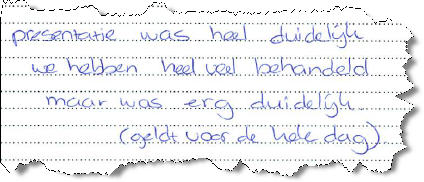 presentatie was heel duidelijk
we hebben heel veel behandeld
maar was erg duidelijk.
(geldt voor de hele dag)